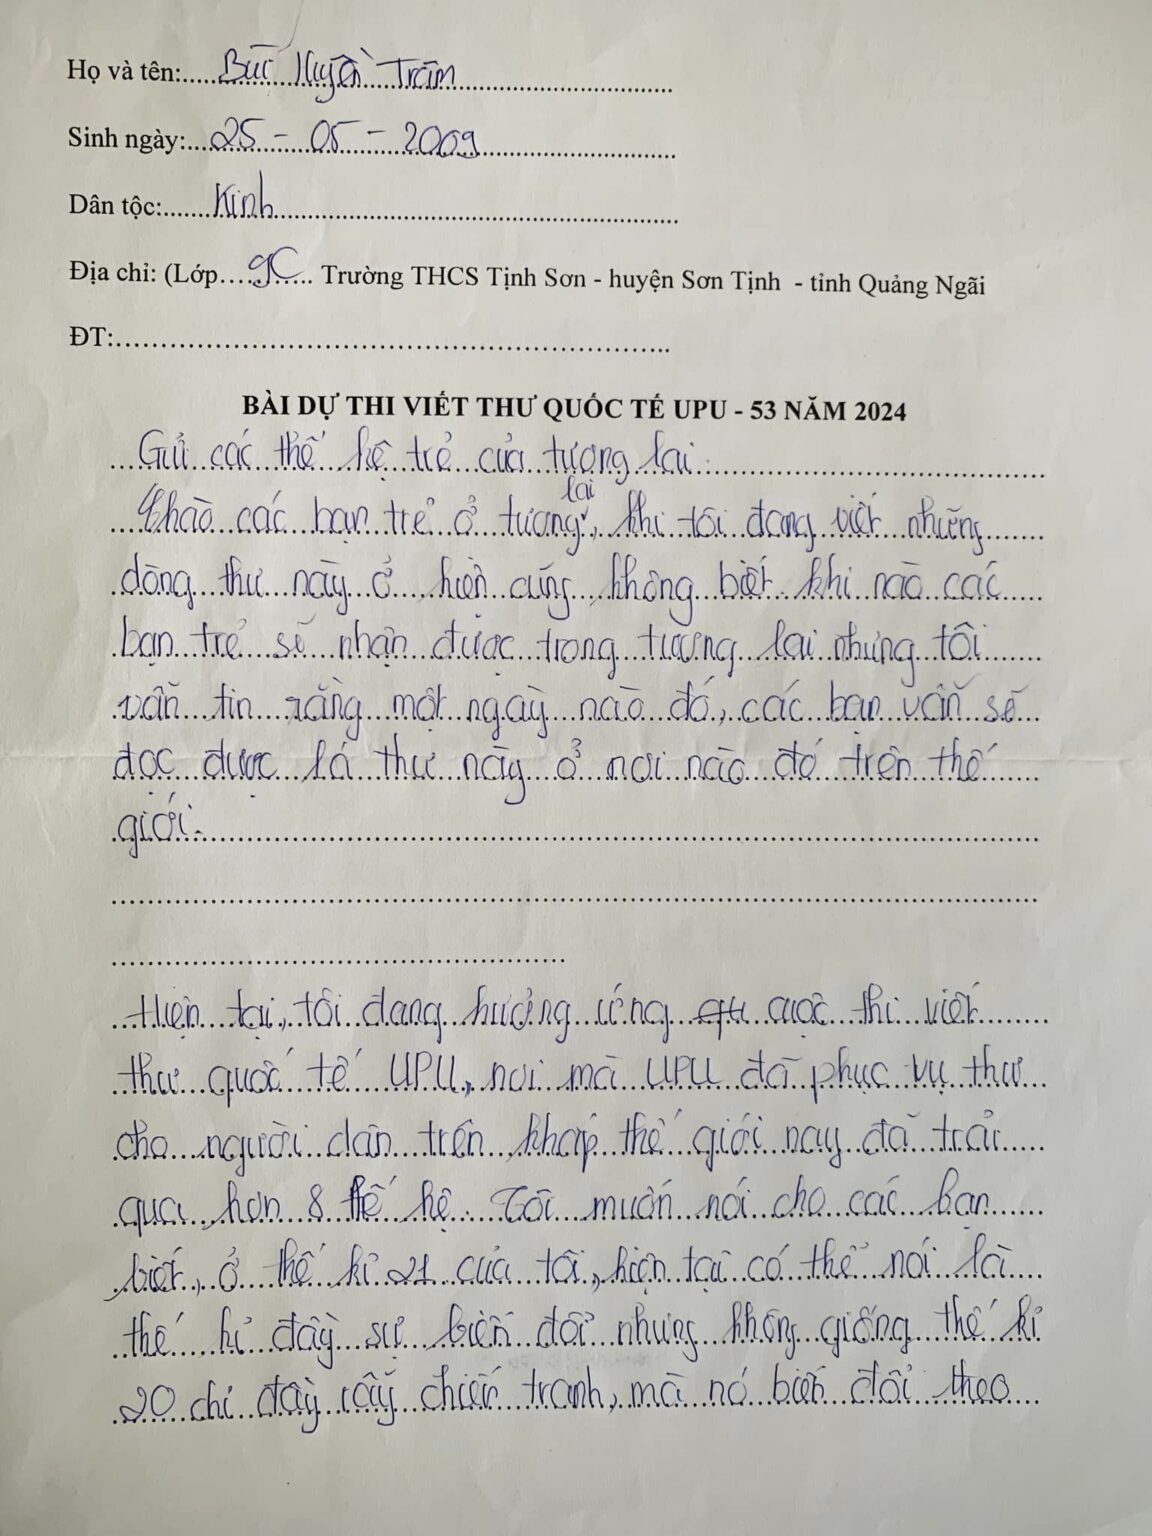 Họ và tên: Bùi Huyền Trâm
Sinh ngày: 25 - 05 - 2009
Dân tộc: Kinh
Địa chỉ: (Lớp 9C Trường THCS Tịnh Sơn - huyện Sơn Tịnh - tỉnh Quảng Ngãi
ĐT:
BÀI DỰ THI VIẾT THƯ QUỐC TẾ UPU - 53 NĂM 2024
Gửi các thế hệ trẻ của tương lai
Chào các bạn trẻ ở tương lai, khi tôi đang viết những
dòng thư này ở hiện cũng không biết khi nào các
bạn trẻ sẽ nhận được trong tương lai nhưng tôi
vẫn tin rằng một ngày nào đó, các bạn vẫn sẽ
đọc được lá thư này ở nơi nào đó trên thế
giới.
Hiện tại, tôi đang hưởng ứng cuộc thi viết
thư quốc tế UPU, nơi mà UPU đã phục vụ thư
cho người dân trên khắp thế giới nay đã trải
qua hơn 8 thế hệ. Tôi muốn nói cho các bạn
biết, ở thế kỉ 21 của tôi, hiện tại có thể nói là
thế kỉ đầy sự biến đổi nhưng không giống thế kỉ
20 chỉ đầy rẫy chiến tranh, mà nó biến đổi theo